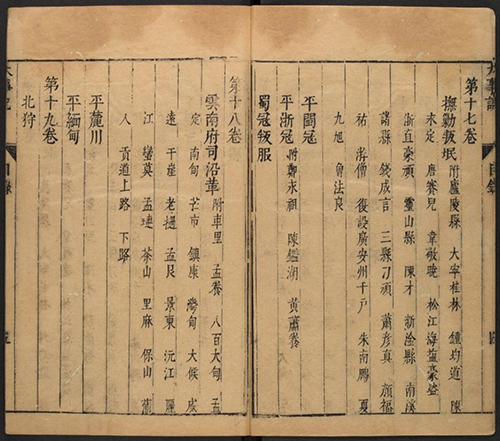 第十七卷
撫勦叛垊 附廬陵縣 大寧桂林 鍾均道 陳
永定 唐賽兒 韋敬曉 松江海盜豪盜
浙直豪頑 靈山縣 陳才 新淦縣 南溪
諸縣 錢成言 三縣刁頑 蕭彥真 顏福
祐 游僧 復設廣安州千戶 朱南鵬 夏
九旭 魯法良
平閩寇
平浙寇 附鄭永祖 陳鑑湖 黃蕭養
蜀寇叛服
第十八卷
雲南府司沿革 附車里 孟養 八百大甸 孟
定 南甸 芒市 鎮康 灣甸 大候 威
遠 干崖 老撾 孟艮 景東 沅江 麗
江 蠻莫 孟璉 茶山 里麻 保山
入貢道上路 下路
平麓川
平緬甸
第十九卷
北狩
目錄
目錄